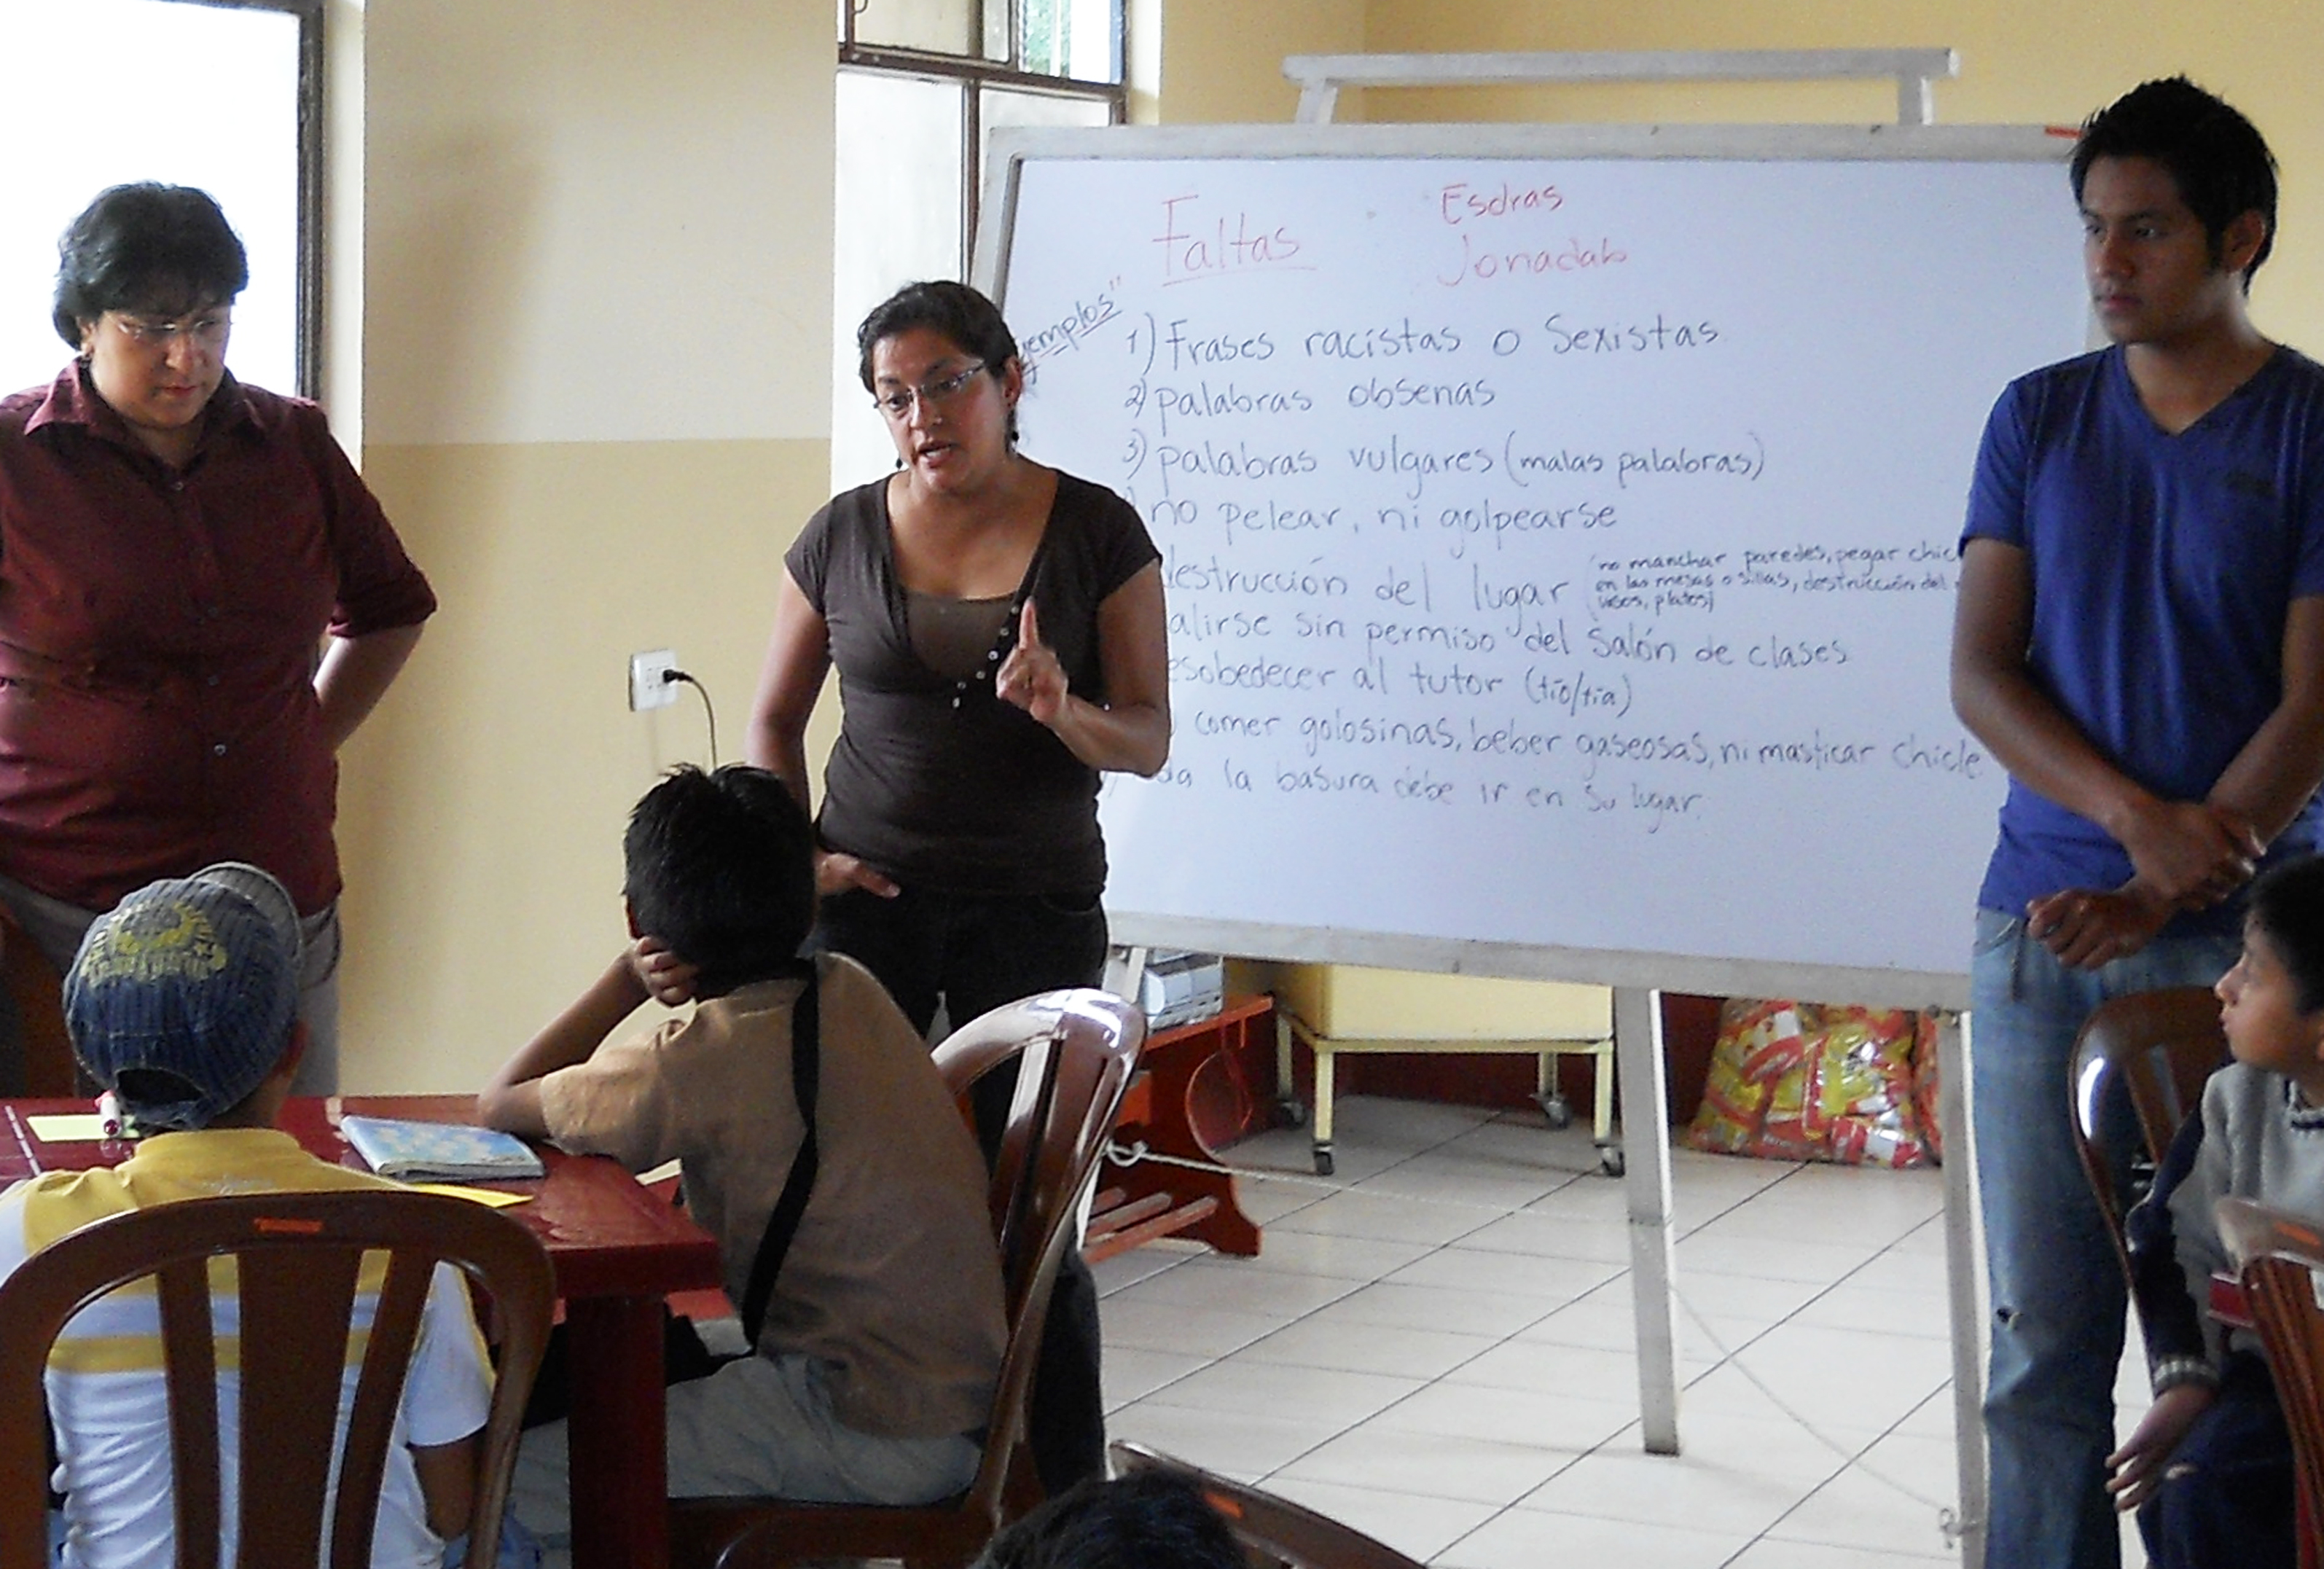 Faltas
Esdras
Jonadab
ejemplos"
1) Frases racistas o Sexistas
2) palabras obsenas
3) palabras vulgares (malas palabras)
no pelear, ni golpearse
destrucción del lugar (no manchar paredes, pegar chic
en las mesas o sillas, destrucción del
vasos, platos)
alirse sin permiso del Salón de clases
esobedecer al tutor (tío/tía)
comer golosinas, beber gaseosas, ni masticar chicle
da la basura debe ir en su lugar.